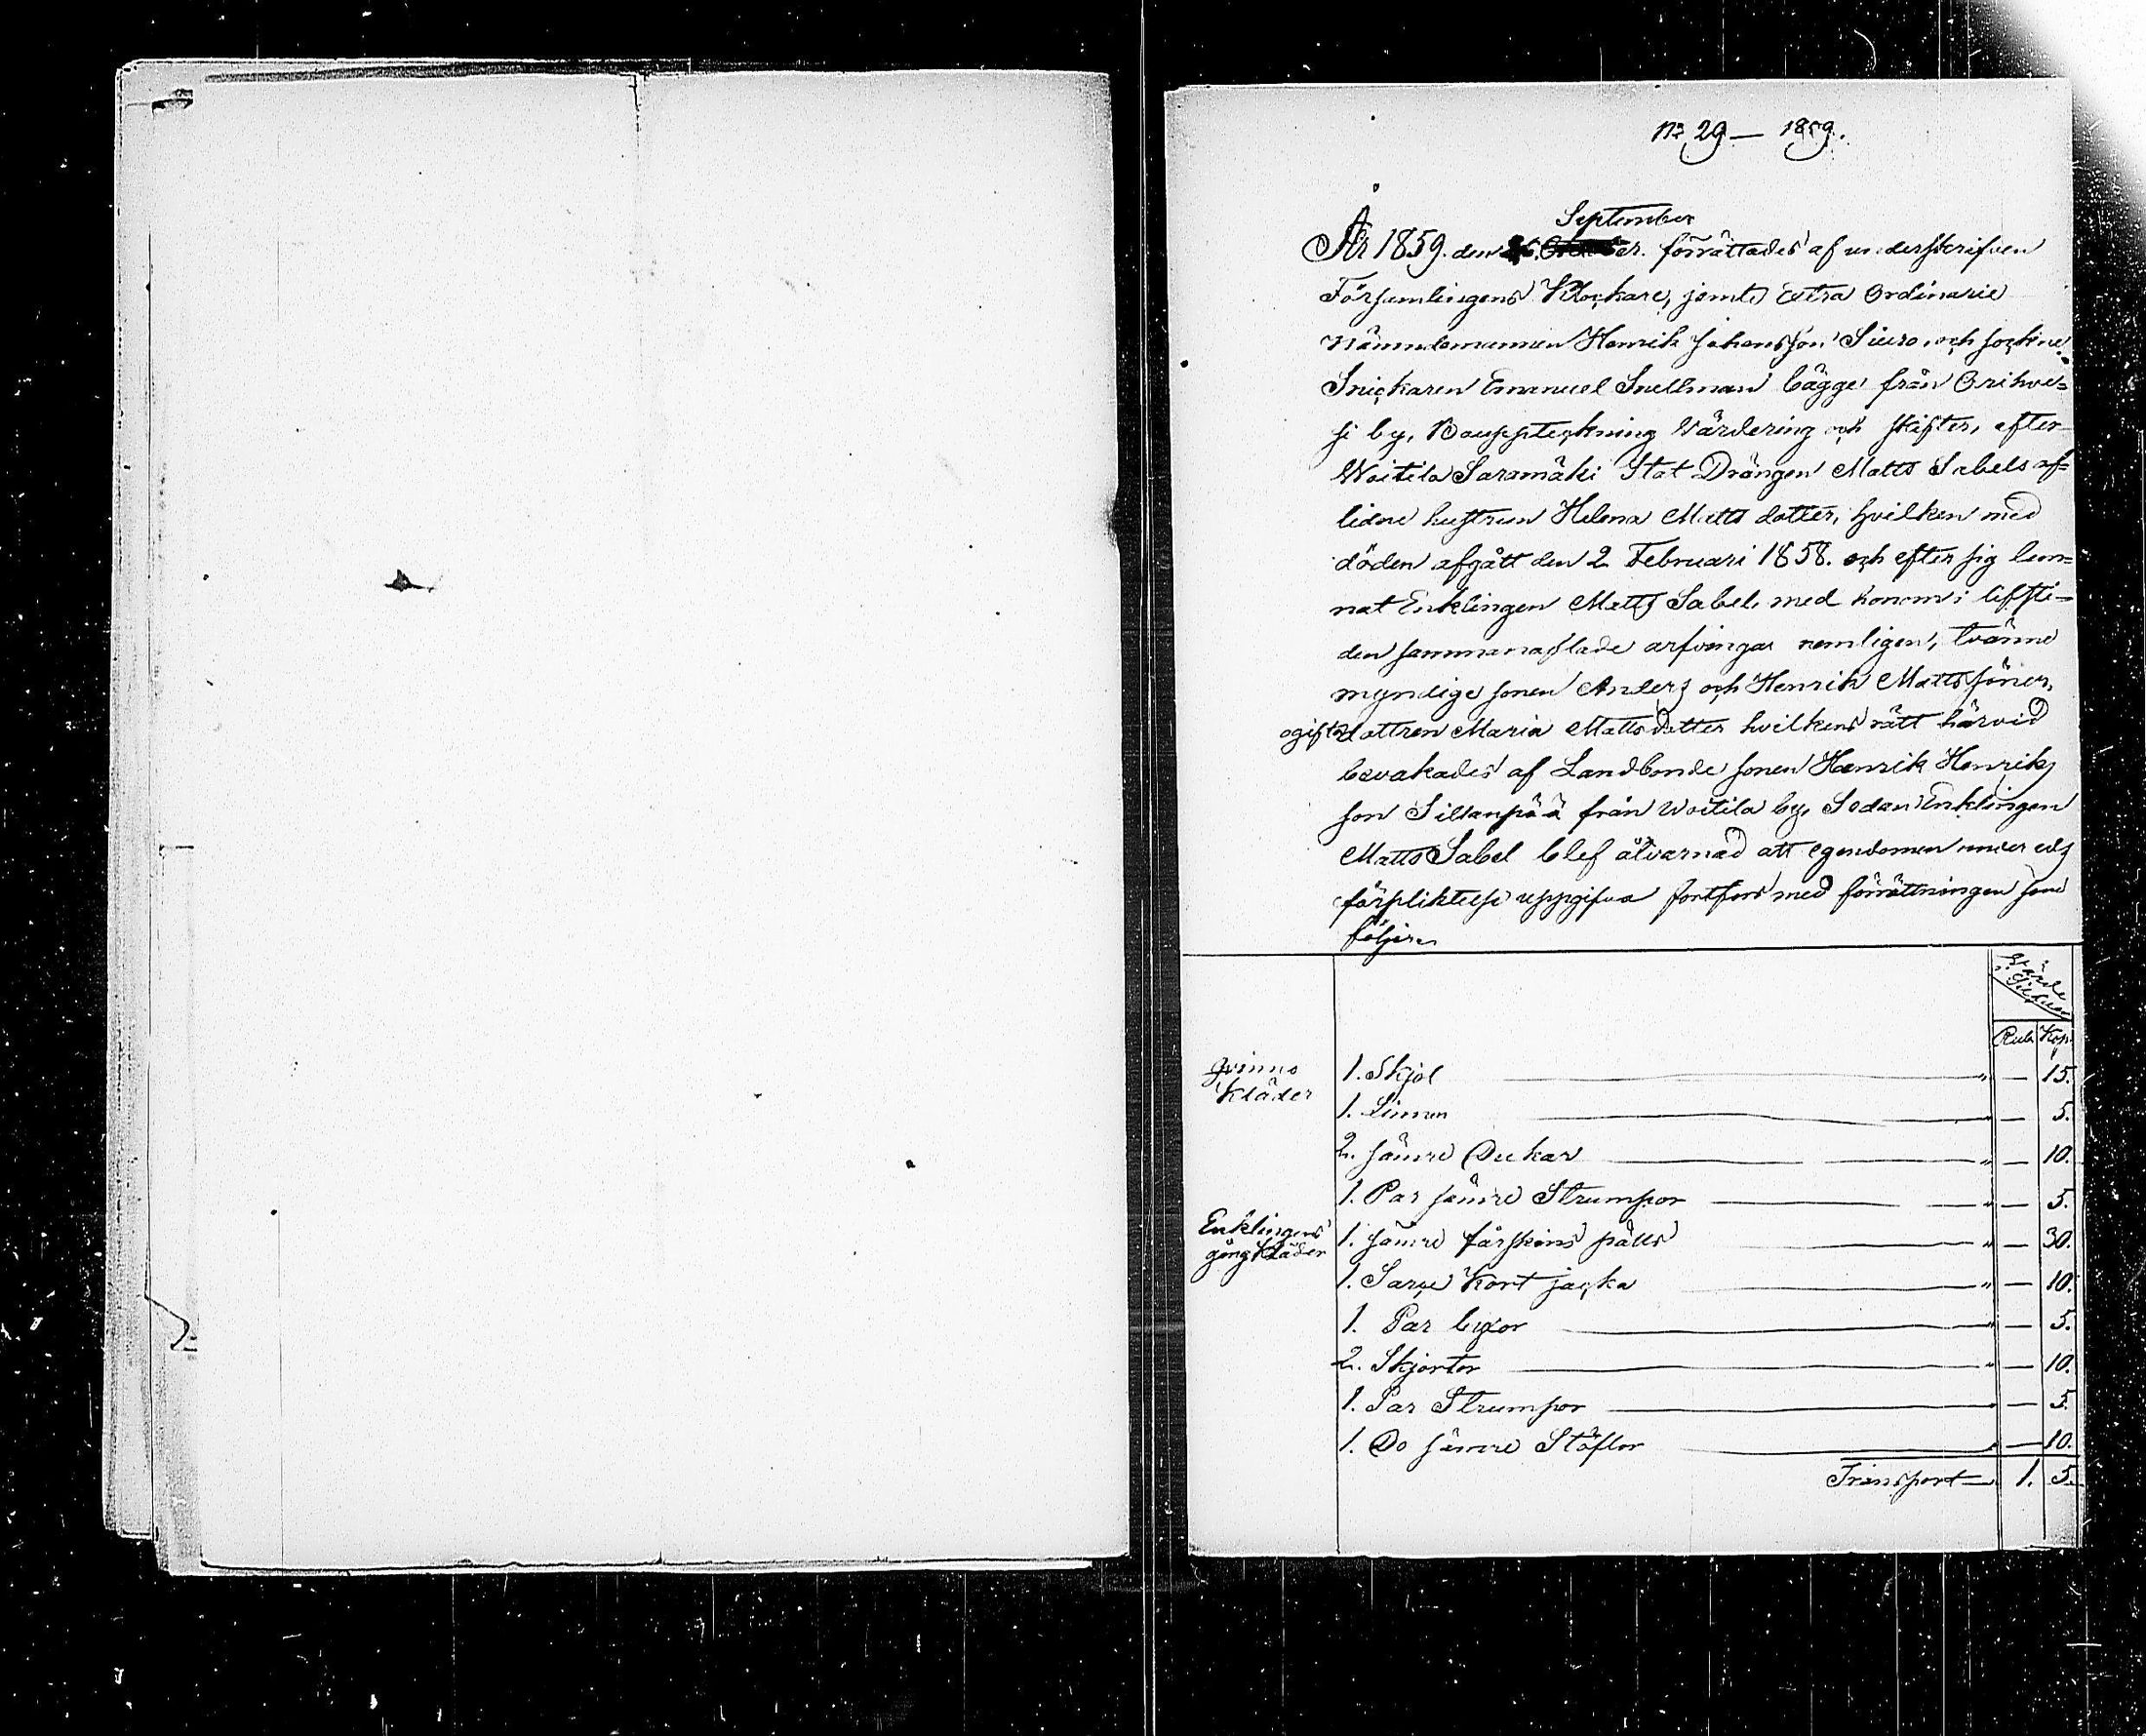 No 29 — 1859.
September
År 1859. den 26. October. förrättades af underskrifven
Församlingens Klockare, jemte Extra Ordinarie
Nämndemannen Henrik Johansson Siuro, och sockne
Snickaren Emanuel Snellman bägge från Orihve=
si by, Bouppteckning Värdering och skiftes, efter
Woitila Saramäki Stat Drängen Matts Sabels af=
lidne hustrun Helena Matts dotter, hvilken med
döden afgått den 2 Februari 1858. och efter sig lem=
nat Enklingen Matts Sabel, med honom i lifsti=
den sammanaflade arfvingar nemligen, tvänne
myndige sonen Anders och Henrik Matts söner,
ogifta dottren Maria Mattsdotter hvilkens rätt härvid
bevakades af Landbonde sonen Henrik Henriks
son Sillanpää från Woitila by, Sedan Enklingen
Matts Sabel blef alvarnad att egendomen under eds
förpliktelse uppgifva fortfors med förrättningen som
följer.
Värde i Silfver
Rub. Kop.
Qvinno Kläder
1. Skjol — 15.
1. Linnen — 5.
2. sämre Dukar — 10.
1. Par sämre Strumpor — 5.
Enklingens gångkläder
1. sämre fårskins pälls — 30.
1. Sarse Kort jacka — 10.
1. Par byxor — 5.
2. Skjortor — 10.
1. Par Strumpor — 5.
1. Do sämre Stöflor — 10.
Transport 1. 5.